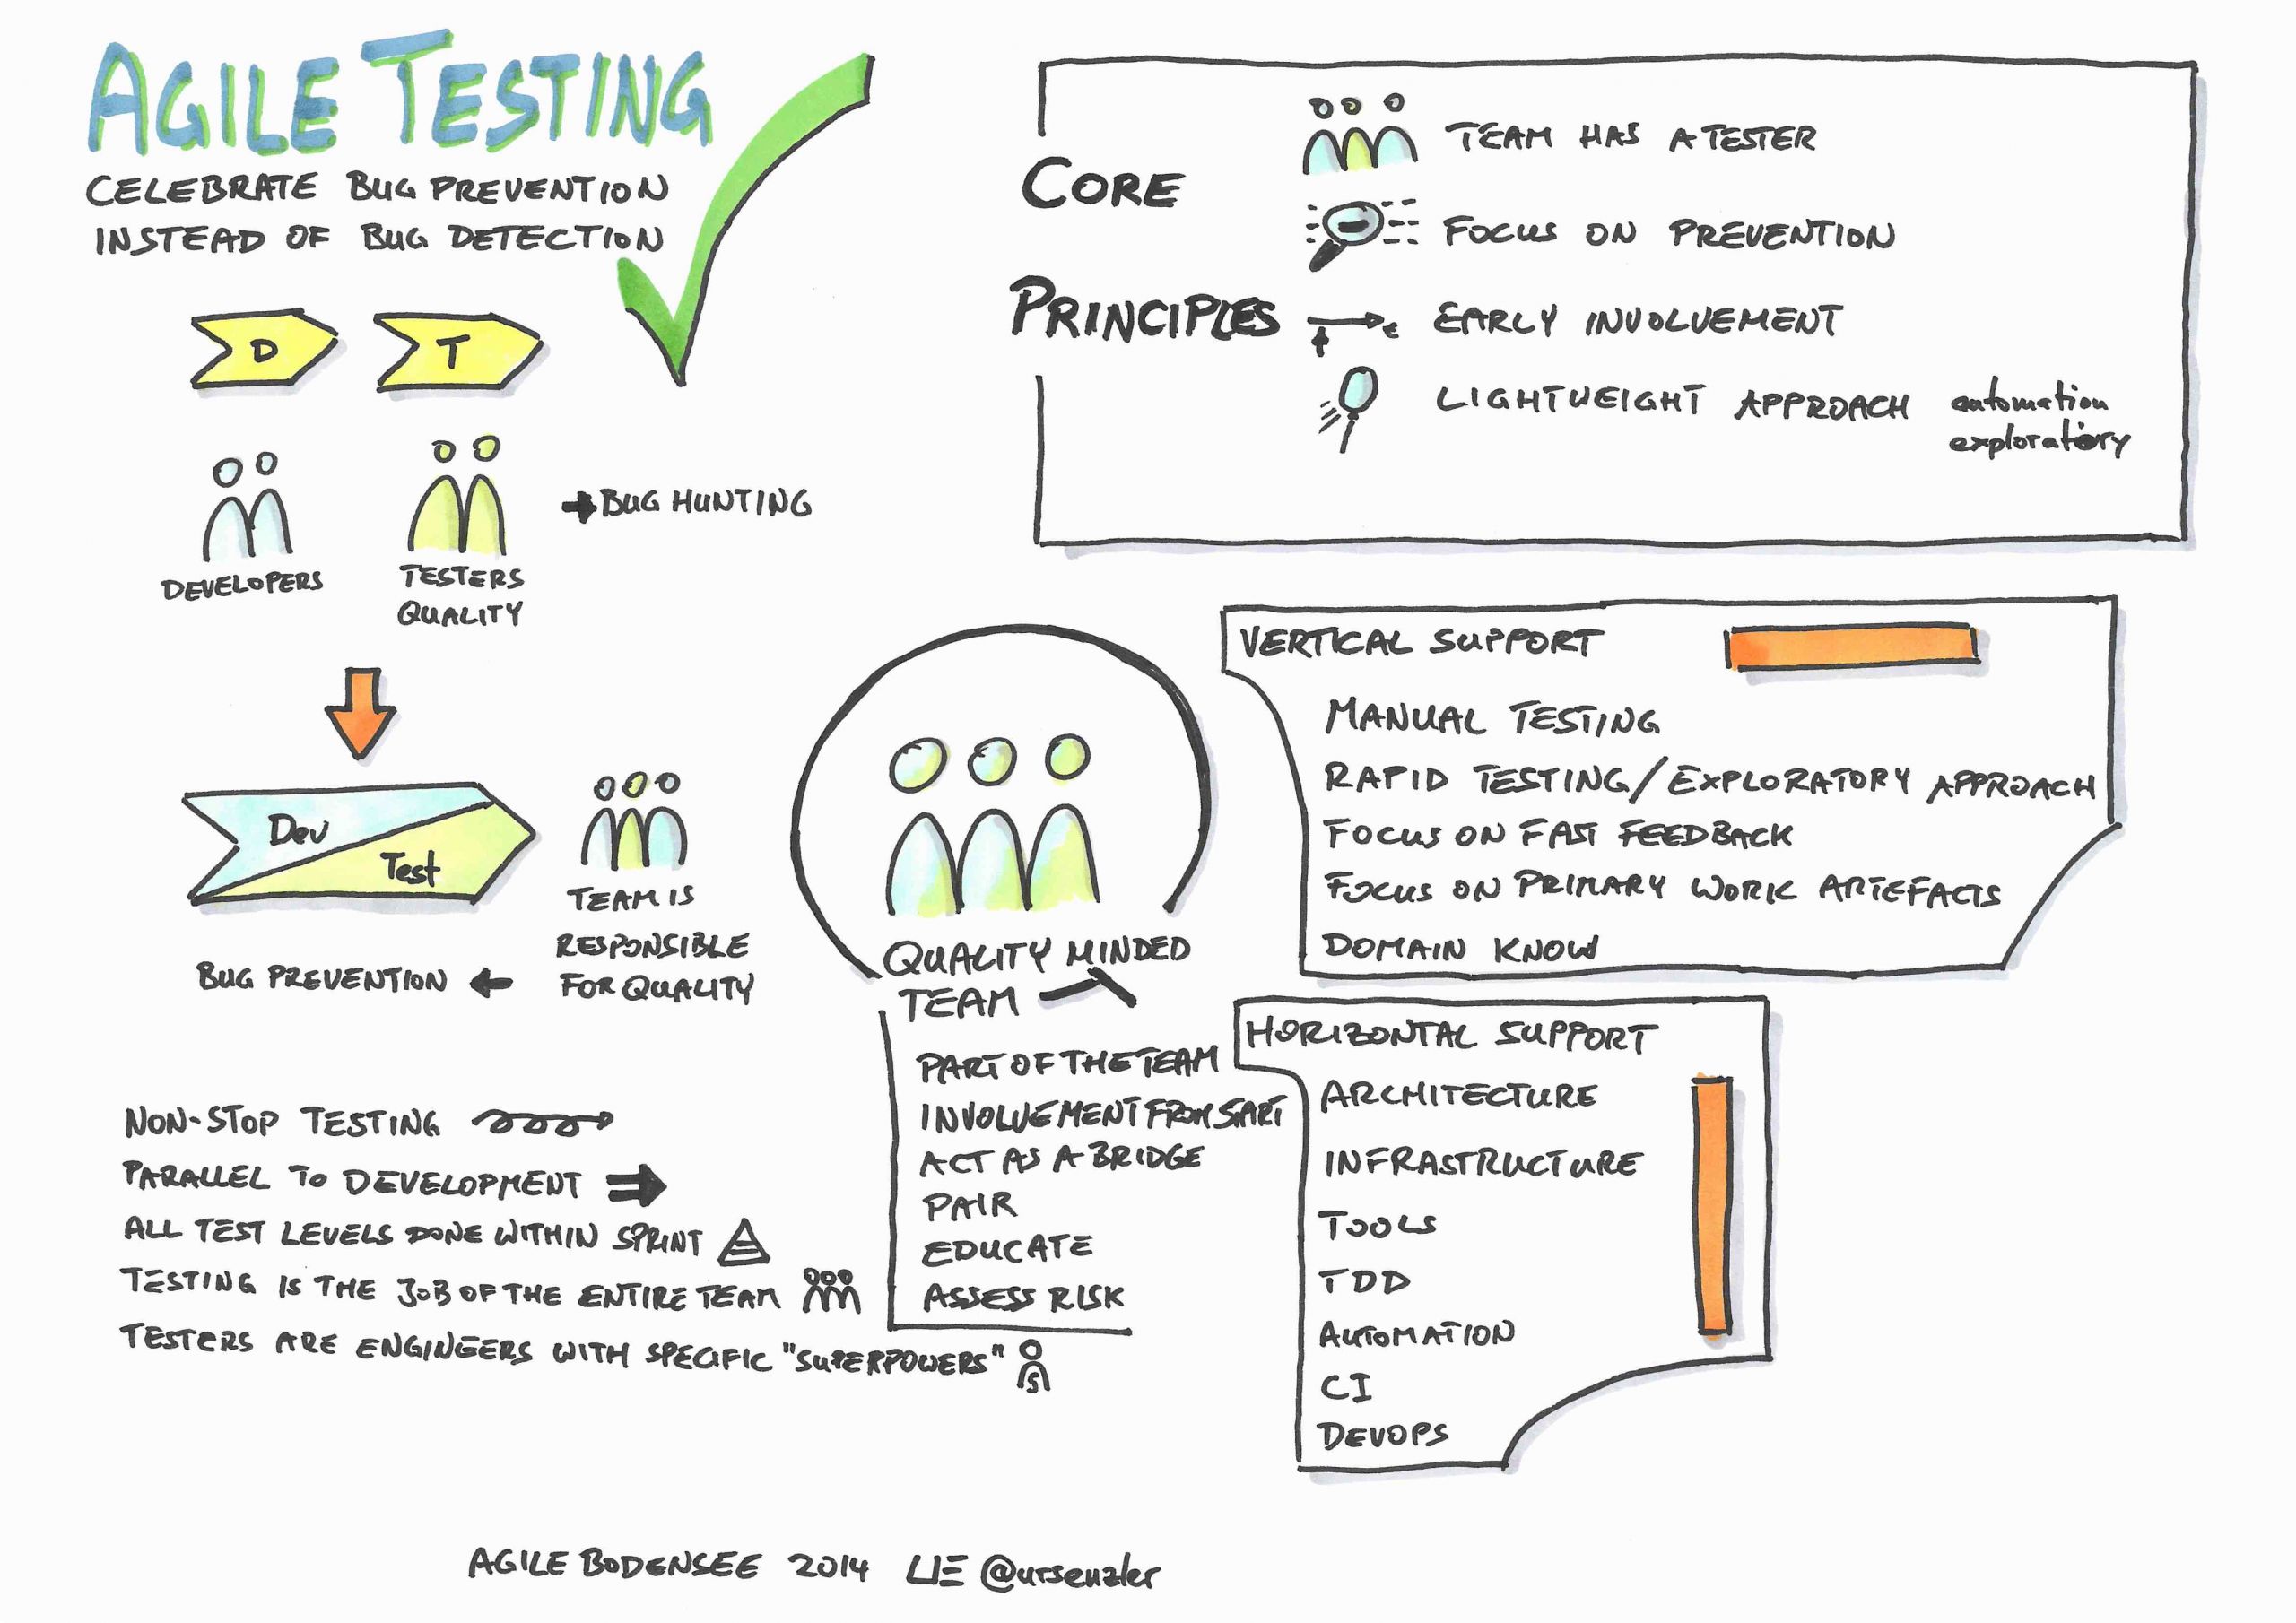 AGILE TESTING
CELEBRATE BUG PREVENTION
INSTEAD OF BUG DETECTION
D
T
DEVELOPERS
TESTERS
QUALITY
→ BUG HUNTING
Dev
Test
TEAM IS
RESPONSIBLE
FOR QUALITY
BUG PREVENTION ←
NON-STOP TESTING
PARALLEL TO DEVELOPMENT
ALL TEST LEVELS DONE WITHIN SPRINT
TESTING IS THE JOB OF THE ENTIRE TEAM
TESTERS ARE ENGINEERS WITH SPECIFIC "SUPERPOWERS"
S
CORE
PRINCIPLES
TEAM HAS A TESTER
FOCUS ON PREVENTION
t
EARLY INVOLVEMENT
LIGHTWEIGHT APPROACH automation
exploratory
QUALITY MINDED
TEAM
PART OF THE TEAM
INVOLVEMENT FROM START
ACT AS A BRIDGE
PAIR
EDUCATE
ASSESS RISK
VERTICAL SUPPORT
MANUAL TESTING
RAPID TESTING/EXPLORATORY APPROACH
FOCUS ON FAST FEEDBACK
FOCUS ON PRIMARY WORK ARTEFACTS
DOMAIN KNOW
HORIZONTAL SUPPORT
ARCHITECTURE
INFRASTRUCTURE
TOOLS
TDD
AUTOMATION
CI
DEVOPS
AGILE BODENSEE 2014 @ursenzler